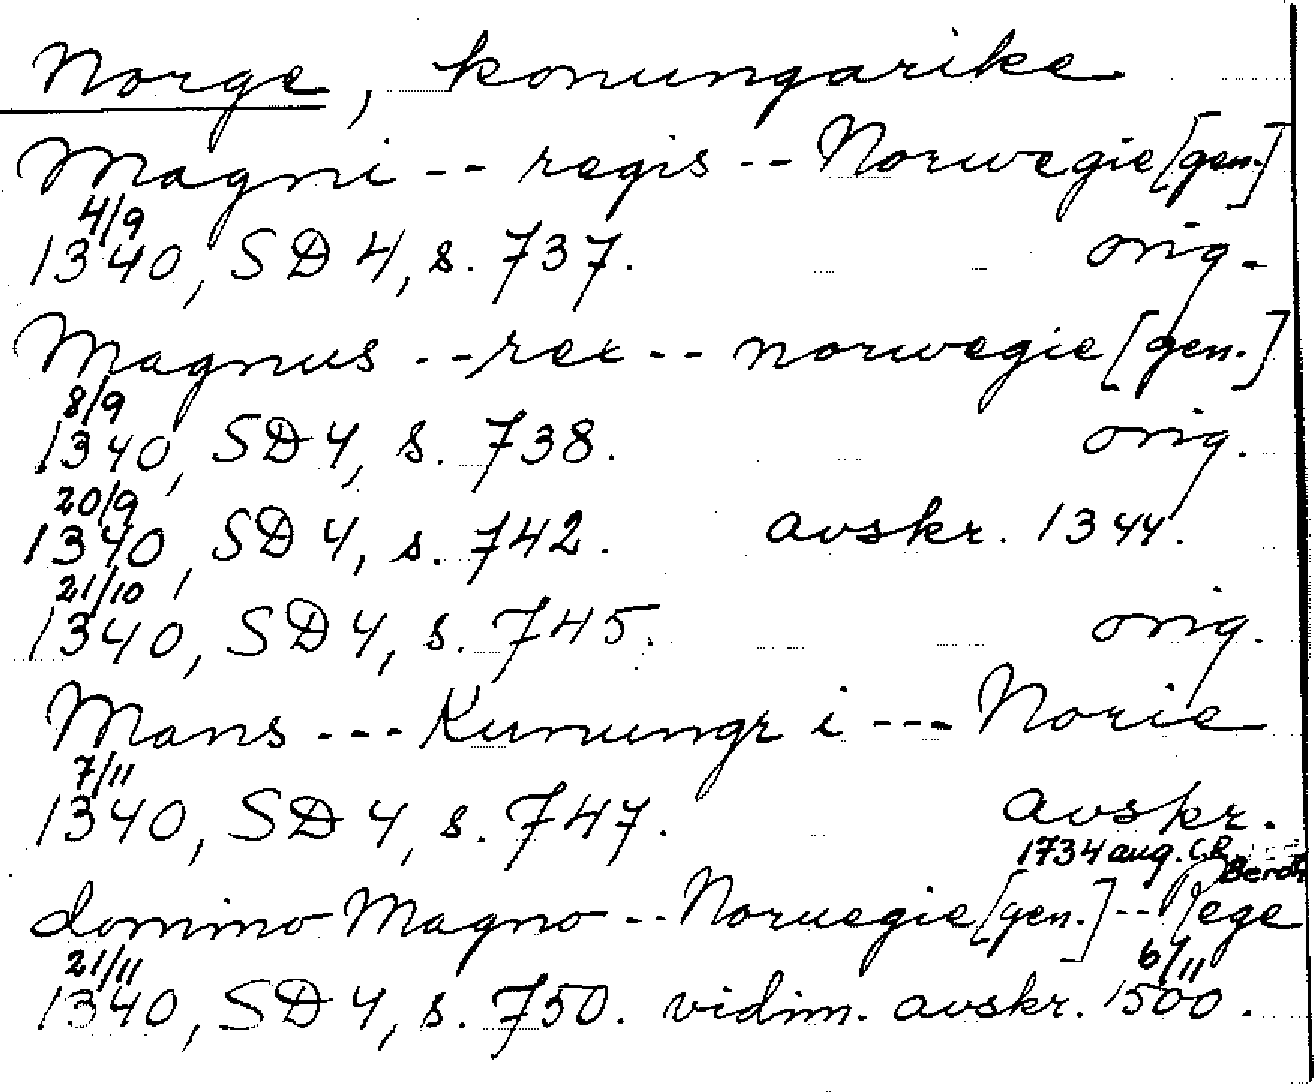 Norge, konungarike
Magni -- regis -- Norwegie [gen.]
4/9
1340, SD 4, s. 737. orig.
Magnus -- rex -- norwegie [gen.]
8/9
1340, SD 4, s. 738. orig.
20/9
1340, SD 4, s. 742. avskr. 1344.
21/10
1340, SD 4, s. 745. orig.
Mans --- Kunungr i --- Norie
7/11
1340, SD 4, s. 747. avskr.
1734 aug. C R Beroth
domino Magno -- Noruegie [gen.] -- Rege
21/11 6/11
1340, SD 4, s. 750. vidim. avskr. 1500.